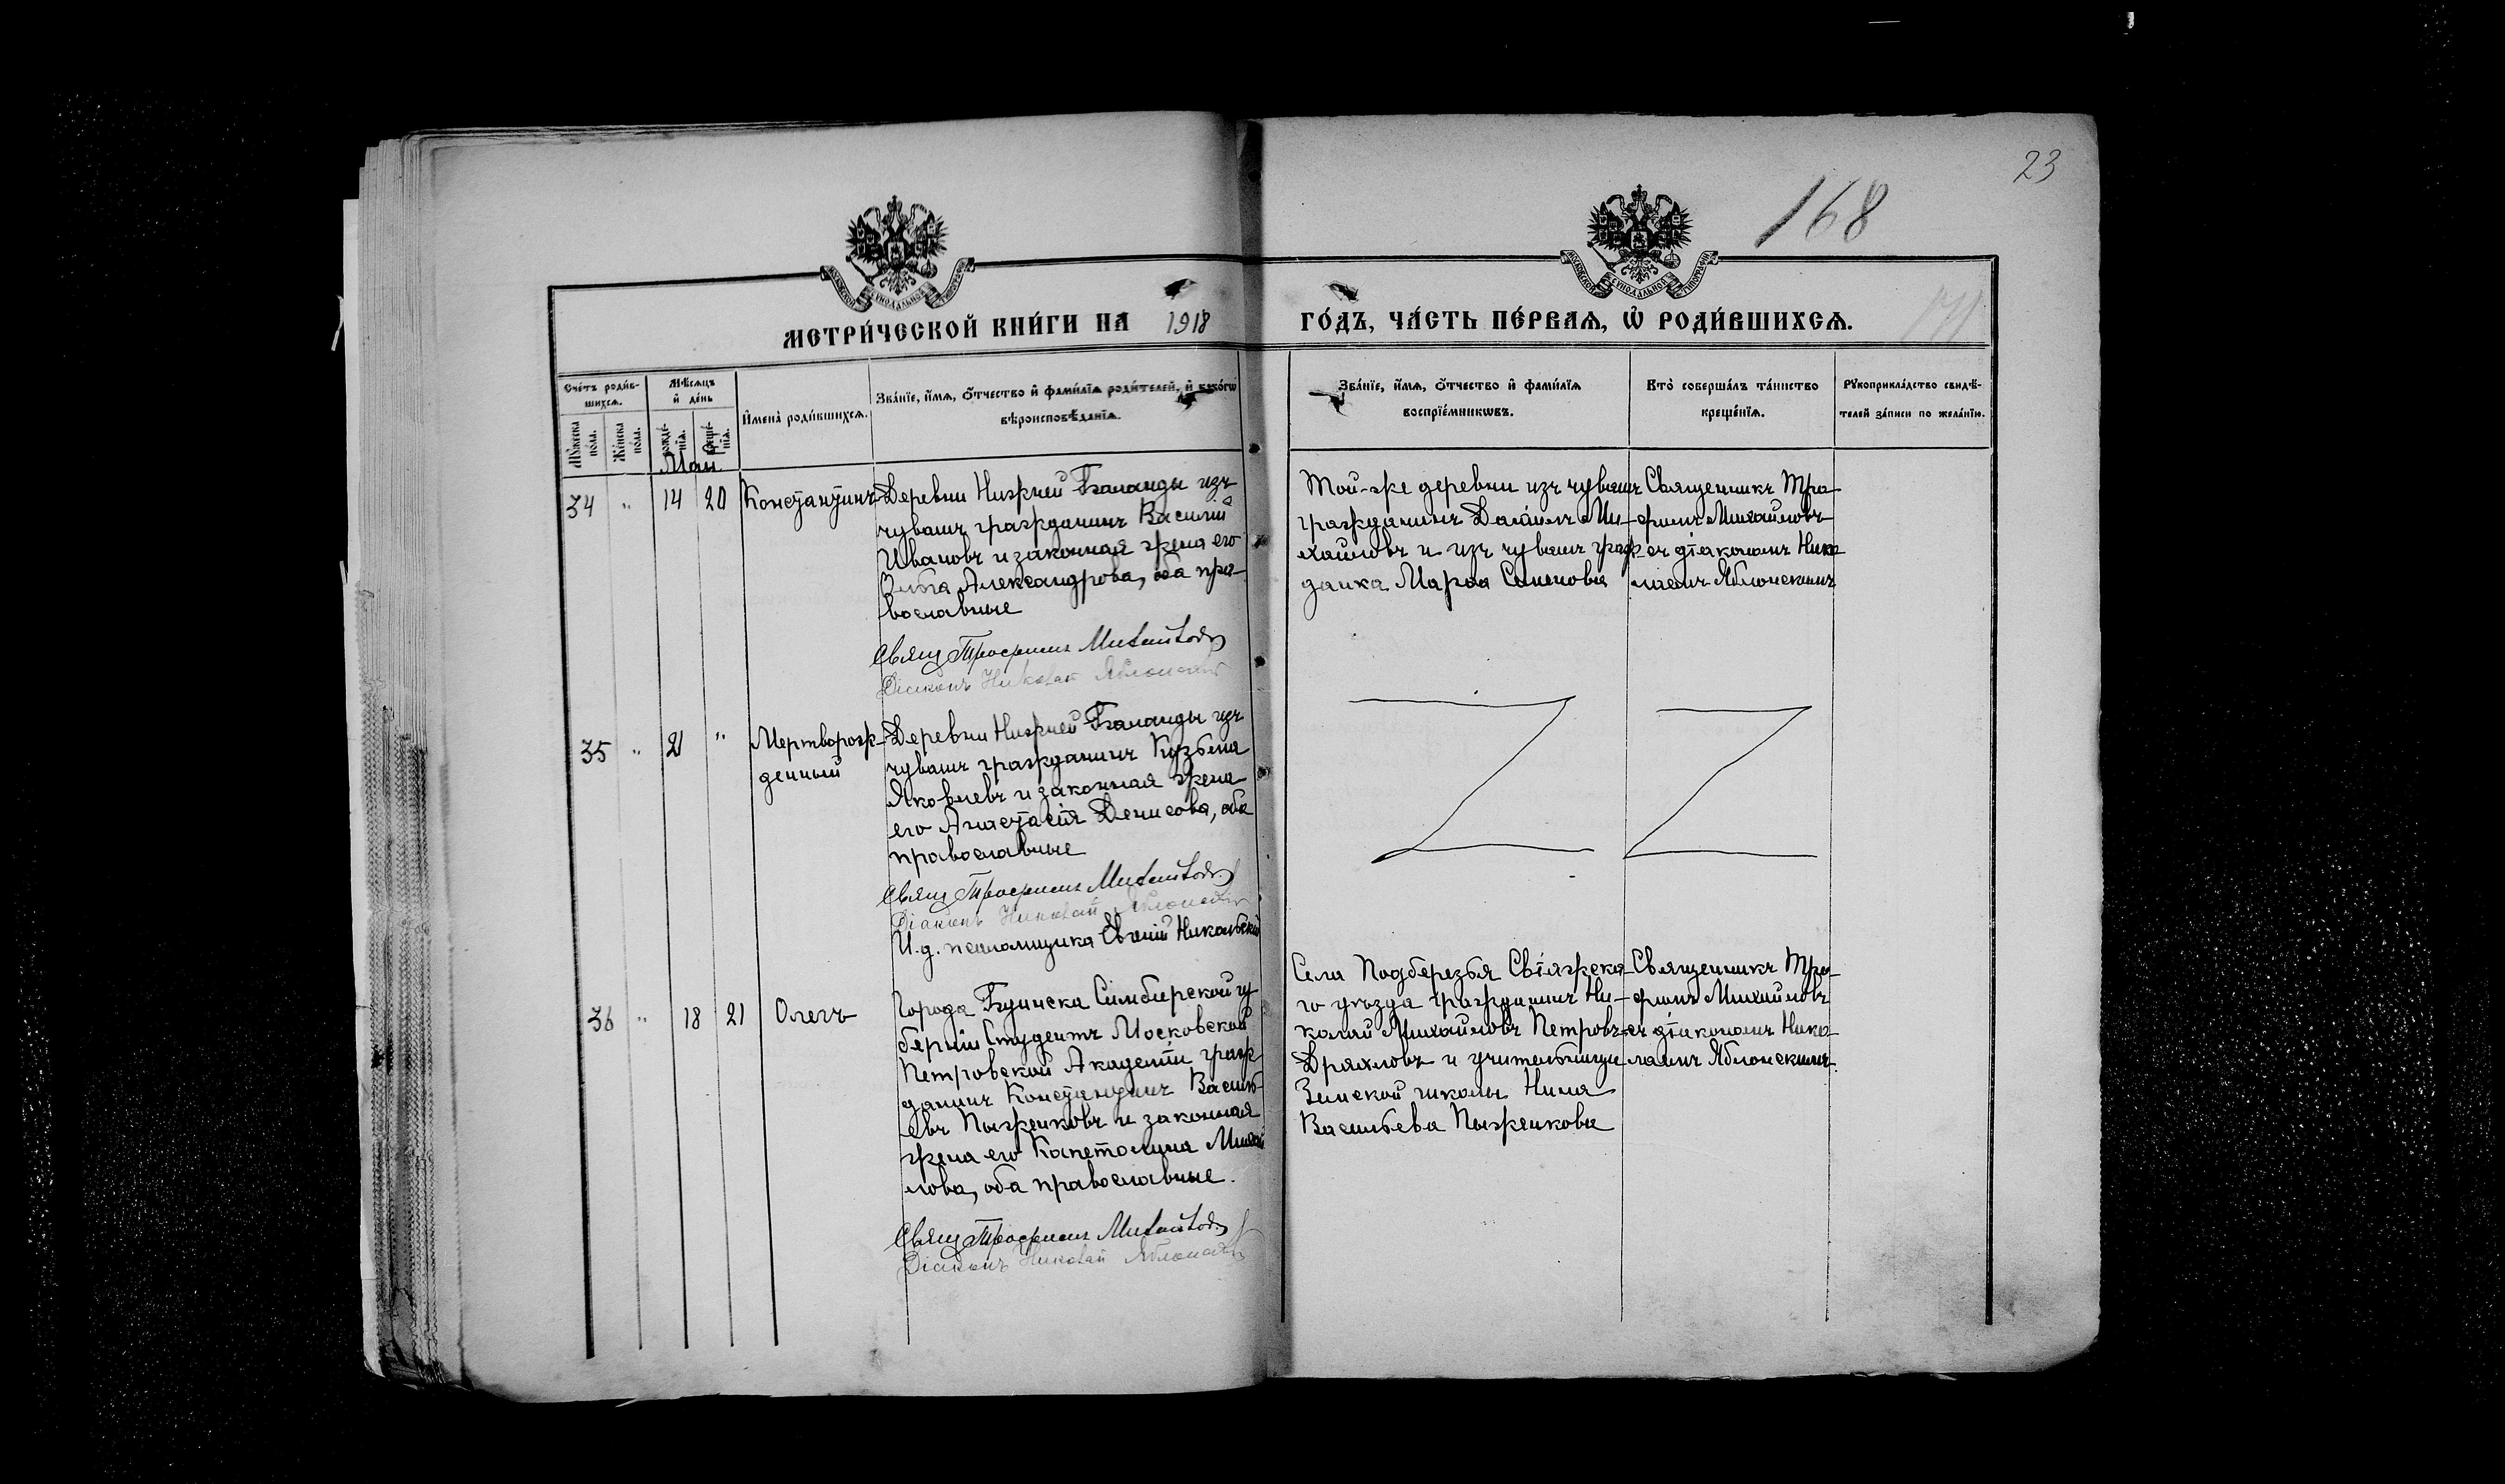 23
168
МЕТРИ́ЧЕСКОЙ КНИ́ГИ НА 1918 ГО́ДЪ, ЧА́СТЬ ПЕ́РВАЯ, Ѡ҆ РОДИ́ВШИХСѦ.
Сче́тъ роди́в-
шихсѧ.
Мѣ́сѧцъ
и҆ де́нь
И҆мена̀ роди́вшихсѧ.
Зва́нїе, и҆́мѧ, ѻ҆́тчество и҆ фами́лїѧ роди́телей, и҆ како́гѡ
вѣроисповѣ́данїѧ.
Зва́нїе, и҆́мѧ, ѻ҆́тчество и҆ фами́лїѧ
воспрїе́мникѡвъ.
Кто̀ соверша́лъ та́инство
креще́нїѧ.
Рꙋкоприкла́дство свидѣ́-
телей за́писи по жела́нїю.
Мꙋ́жеска
по́ла.
Же́нска
по́ла.
рожде́-
нїѧ.
креще́-
нїѧ.
Май.
34 " 14 20 Константинъ
Деревни Нижней Каланды изъ
чувашъ гражданинъ Василій
Ивановъ и законная жена его
Александрова, оба пра-
вославные
Свящ Трофимъ Михайловъ
Діаконъ Николай Яблонскій
Той-же деревни изъ чувашъ
гражданинъ Даніилъ Ми-
хайловъ и изъ чувашъ граж-
данка Марѳа Семенова
Священникъ Тро-
фимъ Михайловъ
съ діакономъ Нико-
лаемъ Яблонскимъ
35 " 21 " Мертворож-
денный
Деревни Нижней Каланды изъ
чувашъ гражданинъ Кузьма
Яковлевъ и законная жена
его Анастасія Денисова, оба
православные
Свящ Трофимъ Михайловъ
Діаконъ Николай Яблонскій
И.д. псаломщика Евгеній Никольскій
36 " 18 21 Олегъ
Города Буинска Симбирской гу
берніи Студентъ Московской
Петровской Академіи граж
данинъ Константинъ Василь-
евъ Пыженковъ и законная
жена его Капетолина Михай
лова, оба православные.
Свящ Трофимъ Михайловъ
Діаконъ Николай Яблонскій
Села Подберезья Свіяжска-
го уѣзда гражданинъ Ни-
колай Михайловъ Петровъ-
Дряхловъ и учительница
Земской школы Нина
Васильева Пыженкова
Священникъ Тро-
фимъ Михайловъ
съ діакономъ Нико-
лаемъ Яблонскимъ.